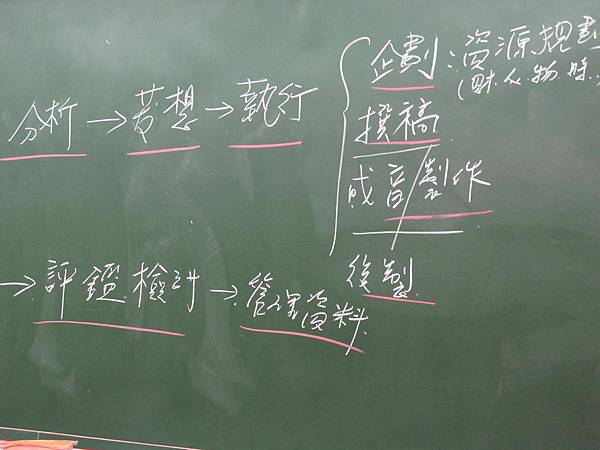 分析→想→執行
企劃:資源規劃
(財.人.物.時..
撰稿
成音/製作
後製
→評鑑檢討→管理資料